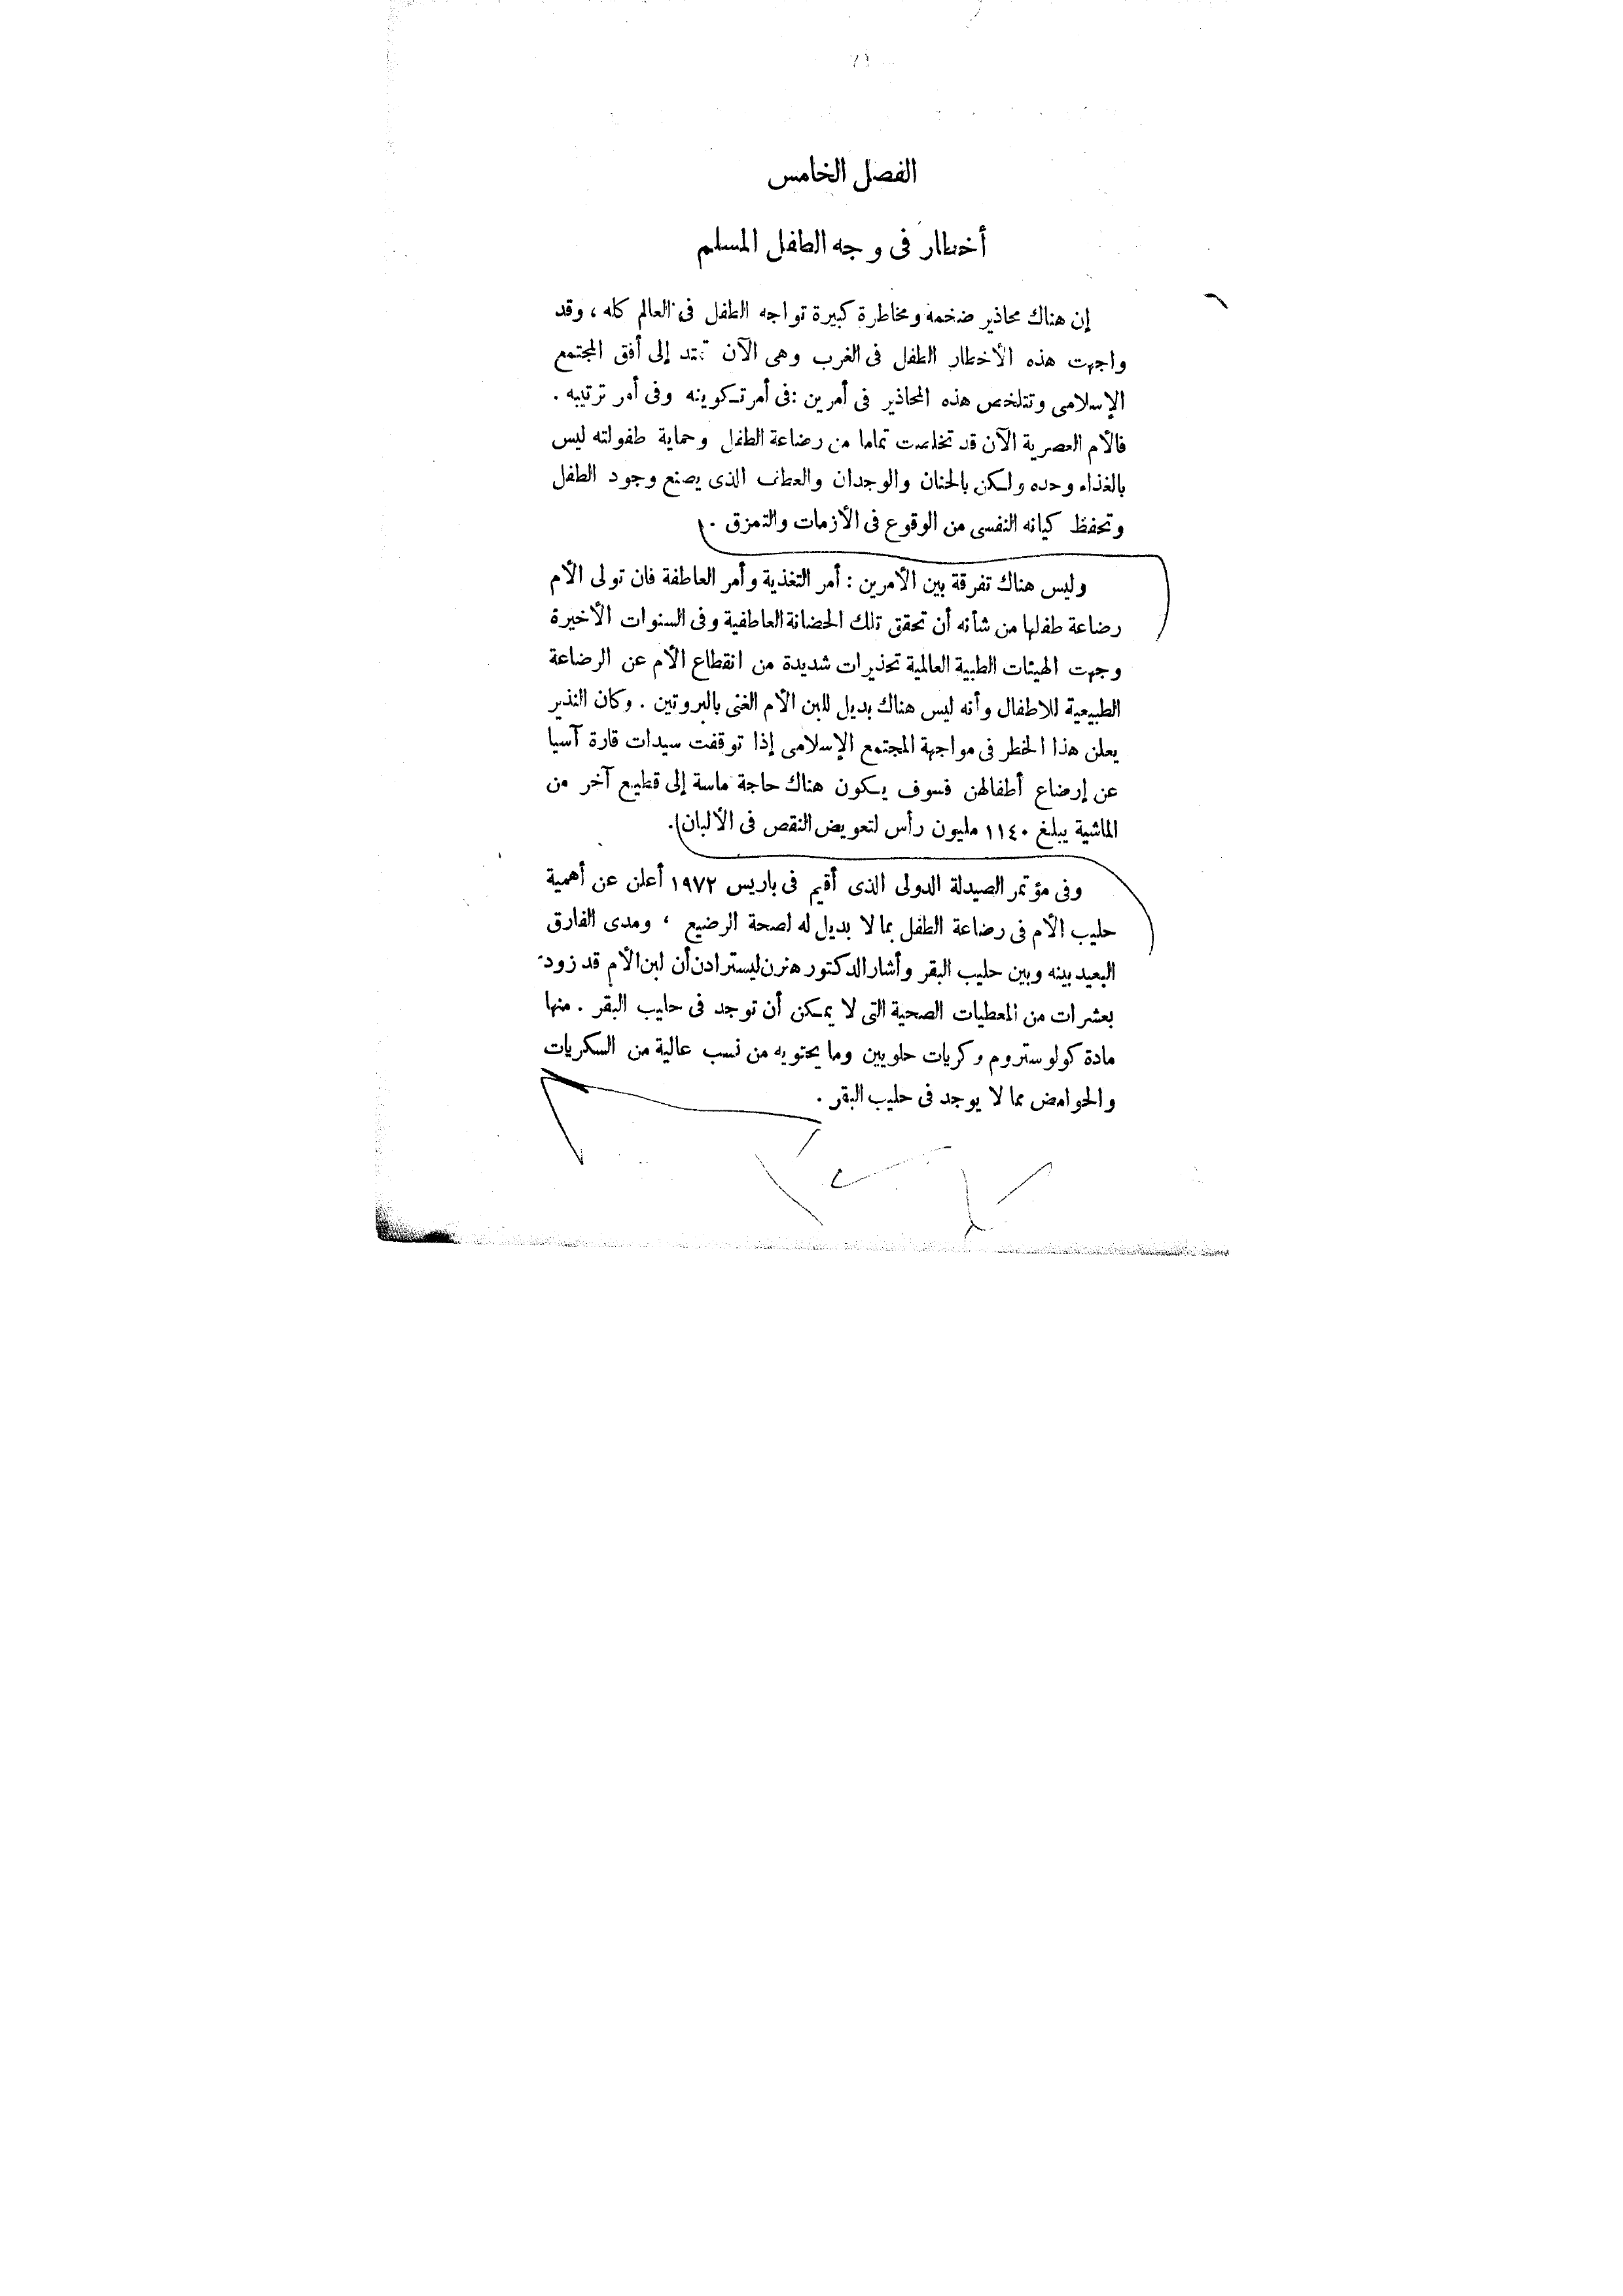 الفصل الخامس
أخطار فى وجه الطفل المسلم
إن هناك محاذير ضخمة ومخاطرة كبيرة تواجه الطفل فى العالم كله ، وقد
واجهت هذه الأخطار الطفل فى الغرب وهى الآن تمتد إلى أفق المجتمع
الإسلامى وتتلخص هذه المحاذير فى أمرين : فى أمر تكوينه وفى أمر ترتيبه .
فالأم العصرية الآن قد تخلصت تماما من رضاعة الطفل وحماية طفولته ليس
بالغذاء وحده ولكن بالحنان والوجدان والعطف الذى يصنع وجود الطفل
وتحفظ كيانه النفسى من الوقوع فى الأزمات والتمزق .
وليس هناك تفرقة بين الأمرين : أمر التغذية وأمر العاطفة فان تولى الأم
رضاعة طفلها من شأنه أن تحقق تلك الحضانة العاطفية وفى السنوات الأخيرة
وجهت الهيئات الطبية العالمية تحذيرات شديدة من انقطاع الأم عن الرضاعة
الطبيعية للاطفال وأنه ليس هناك بديل للبن الأم الغنى بالبروتين . وكان النذير
يعلن هذا الخطر فى مواجهة المجتمع الإسلامى إذا توقفت سيدات قارة آسيا
عن إرضاع أطفالهن فسوف يكون هناك حاجة ماسة إلى قطيع آخر من
الماشية يبلغ ١١٤٠ مليون رأس لتعويض النقص فى الألبان ) .
وفى مؤتمر الصيدلة الدولى الذى أقيم فى باريس ١٩٧٢ أعلن عن أهمية
حليب الأم فى رضاعة الطفل بما لا بديل له لصحة الرضيع ، ومدى الفارق
البعيد بينه وبين حليب البقر وأشار الدكتور هنرن ليسترادن أن لبن الأم قد زود
بعشرات من المعطيات الصحية التى لا يمكن أن توجد فى حليب البقر . منها
مادة كولوستروم وكريات حلويين وما يحتويه من نسب عالية من السكريات
والحوامض مما لا يوجد فى حليب البقر .